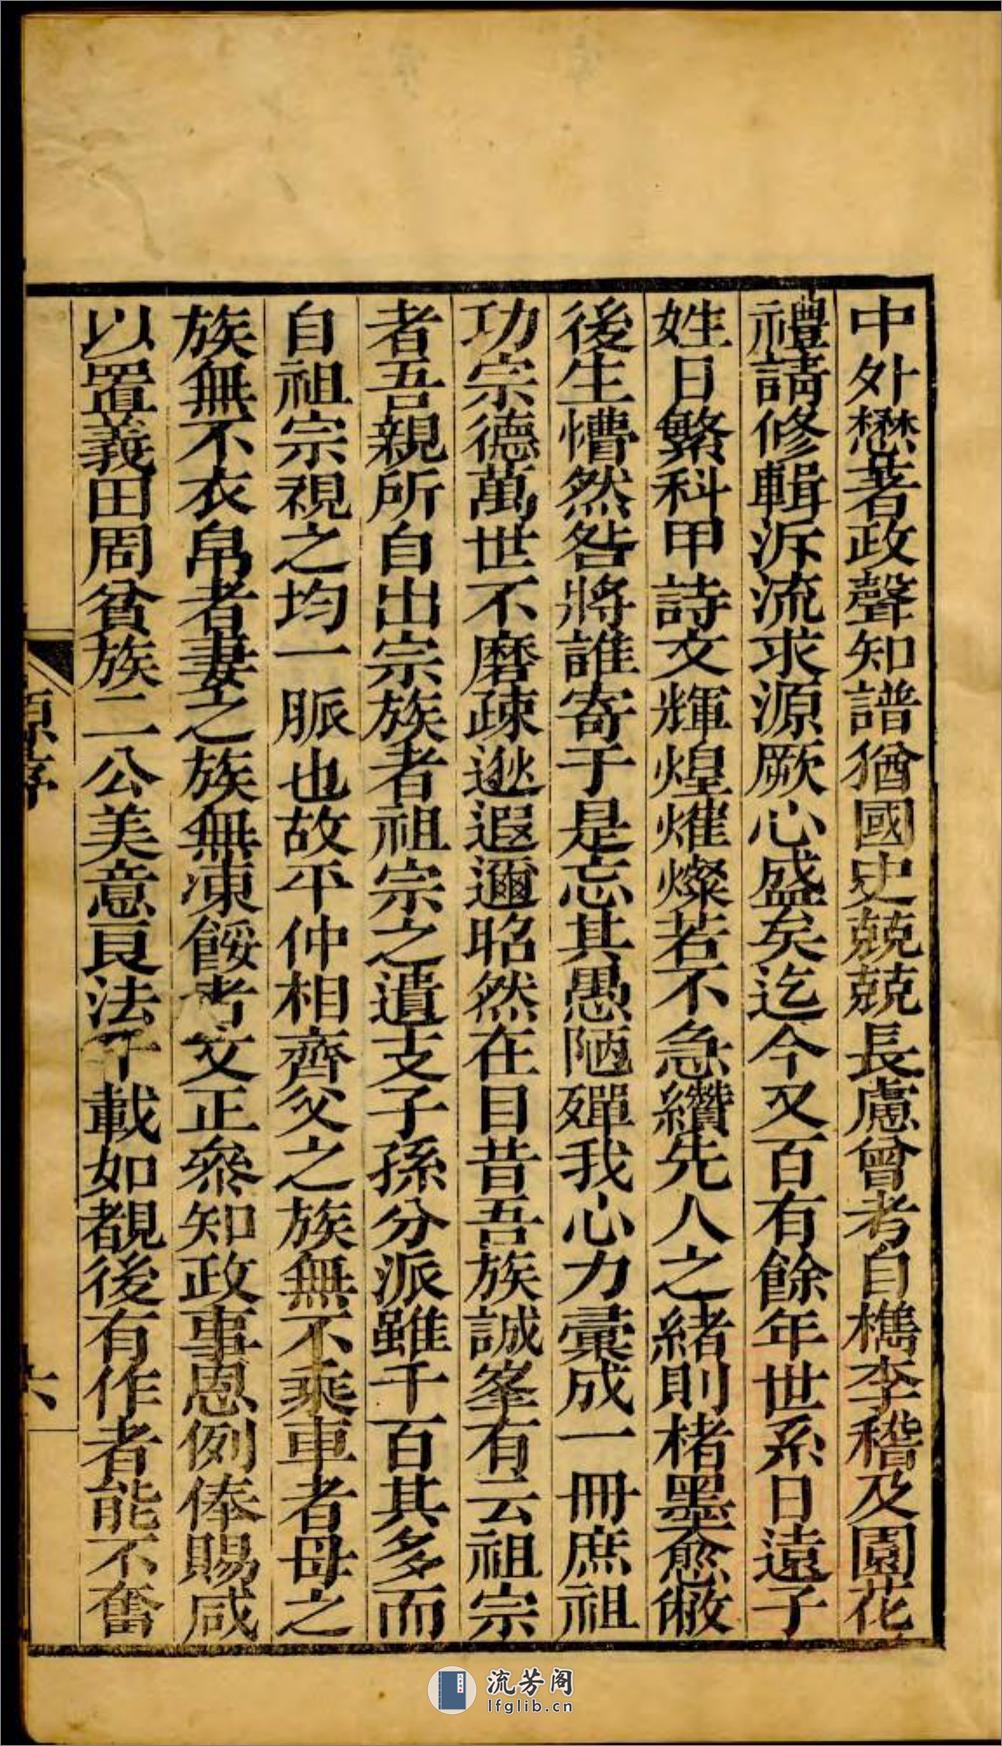 中外懋著政聲知譜猶國史兢兢長慮曾考自檇李稽及園花
禮請修輯泝流求源厥心盛矣迄今又百有餘年世系日遠子
姓日繁科甲詩文輝煌熣燦若不急纘先人之緒則楮墨愈敝
後生懵然咎將誰寄于是忘其愚陋殫我心力彙成一冊庶祖
功宗德萬世不磨疎逖遐邇昭然在目昔吾族誠峯有云祖宗
者吾親所自出宗族者祖宗之遺支子孫分派雖千百其多而
自祖宗視之均一脈也故平仲相齊父之族無不乘車者母之
族無不衣帛者妻之族無凍餒者文正叅知政事恩例俸賜咸
以置義田周貧族二公美意良法千載如覩後有作者能不奮
原序
六
流芳阁
lfglib.cn